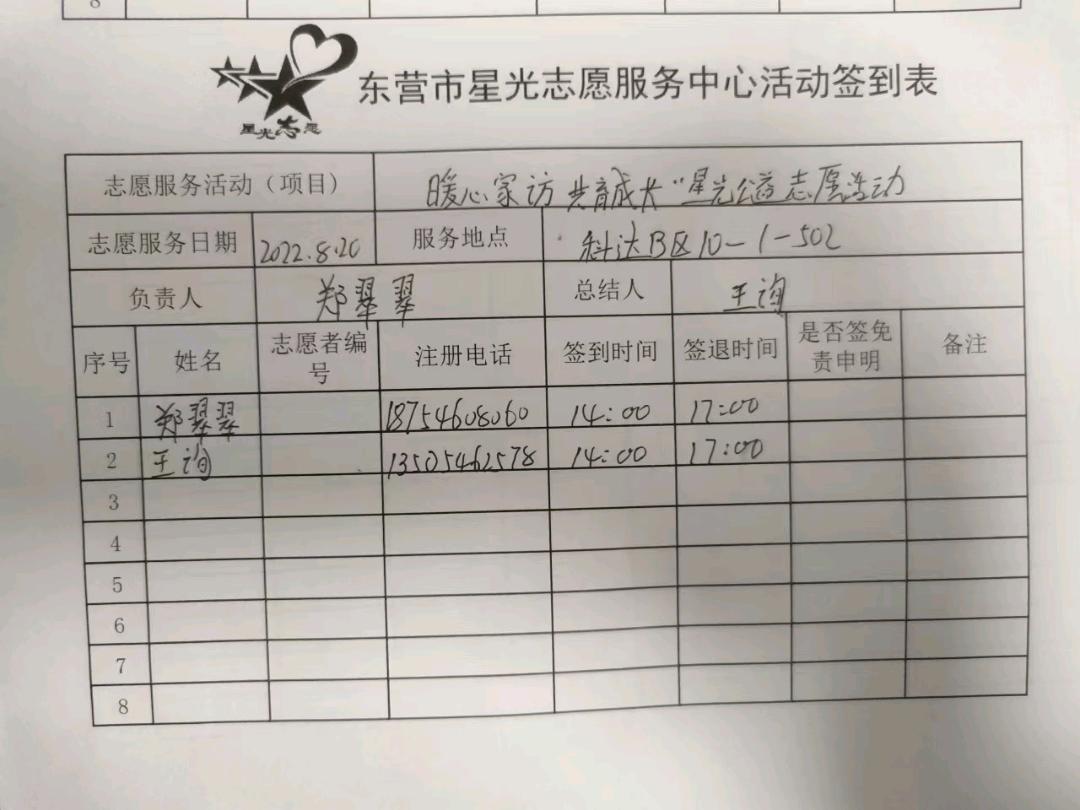 8
星光志愿
东营市星光志愿服务中心活动签到表
志愿服务活动（项目） 暖心家访 共育成长"星光公益志愿活动
志愿服务日期 2022.8.20 服务地点 科达B区10-1-502
负责人 郑翠翠 总结人 王询
序号 姓名 志愿者编号 注册电话 签到时间 签退时间 是否签免责申明 备注
1 郑翠翠 18754608060 14:00 17:00
2 王询 13505462578 14:00 17:00
3
4
5
6
7
8